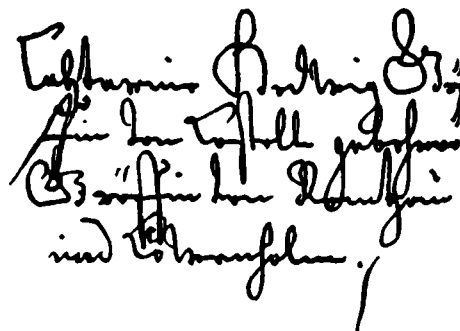 Catharina Hedwig Grä„
fin von Castell gebohrne
Grä„ffin von Rantzau
und Löwenholm.